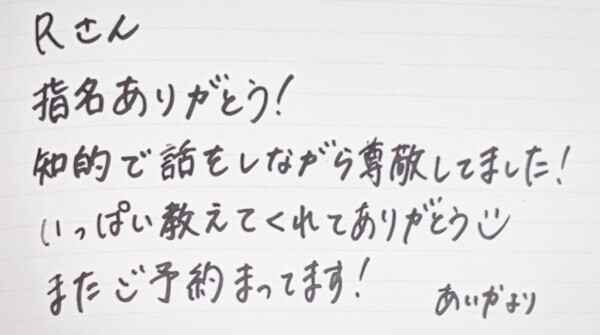 Rさん
指名ありがとう！
知的で話をしながら尊敬してました！
いっぱい教えてくれてありがとう☺
またご予約まってます！
あいかより